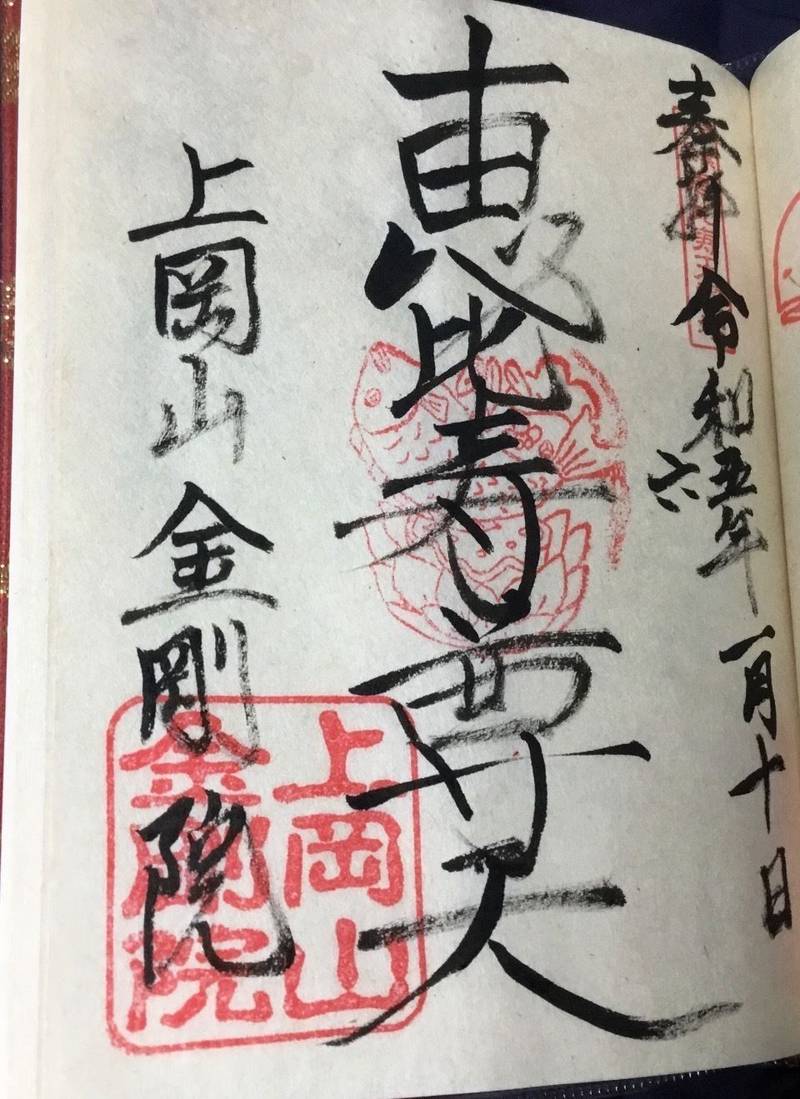 奉拝 令和五年 一月十日
六
恵比寿尊天
上岡山 金剛院
上岡山
金剛院